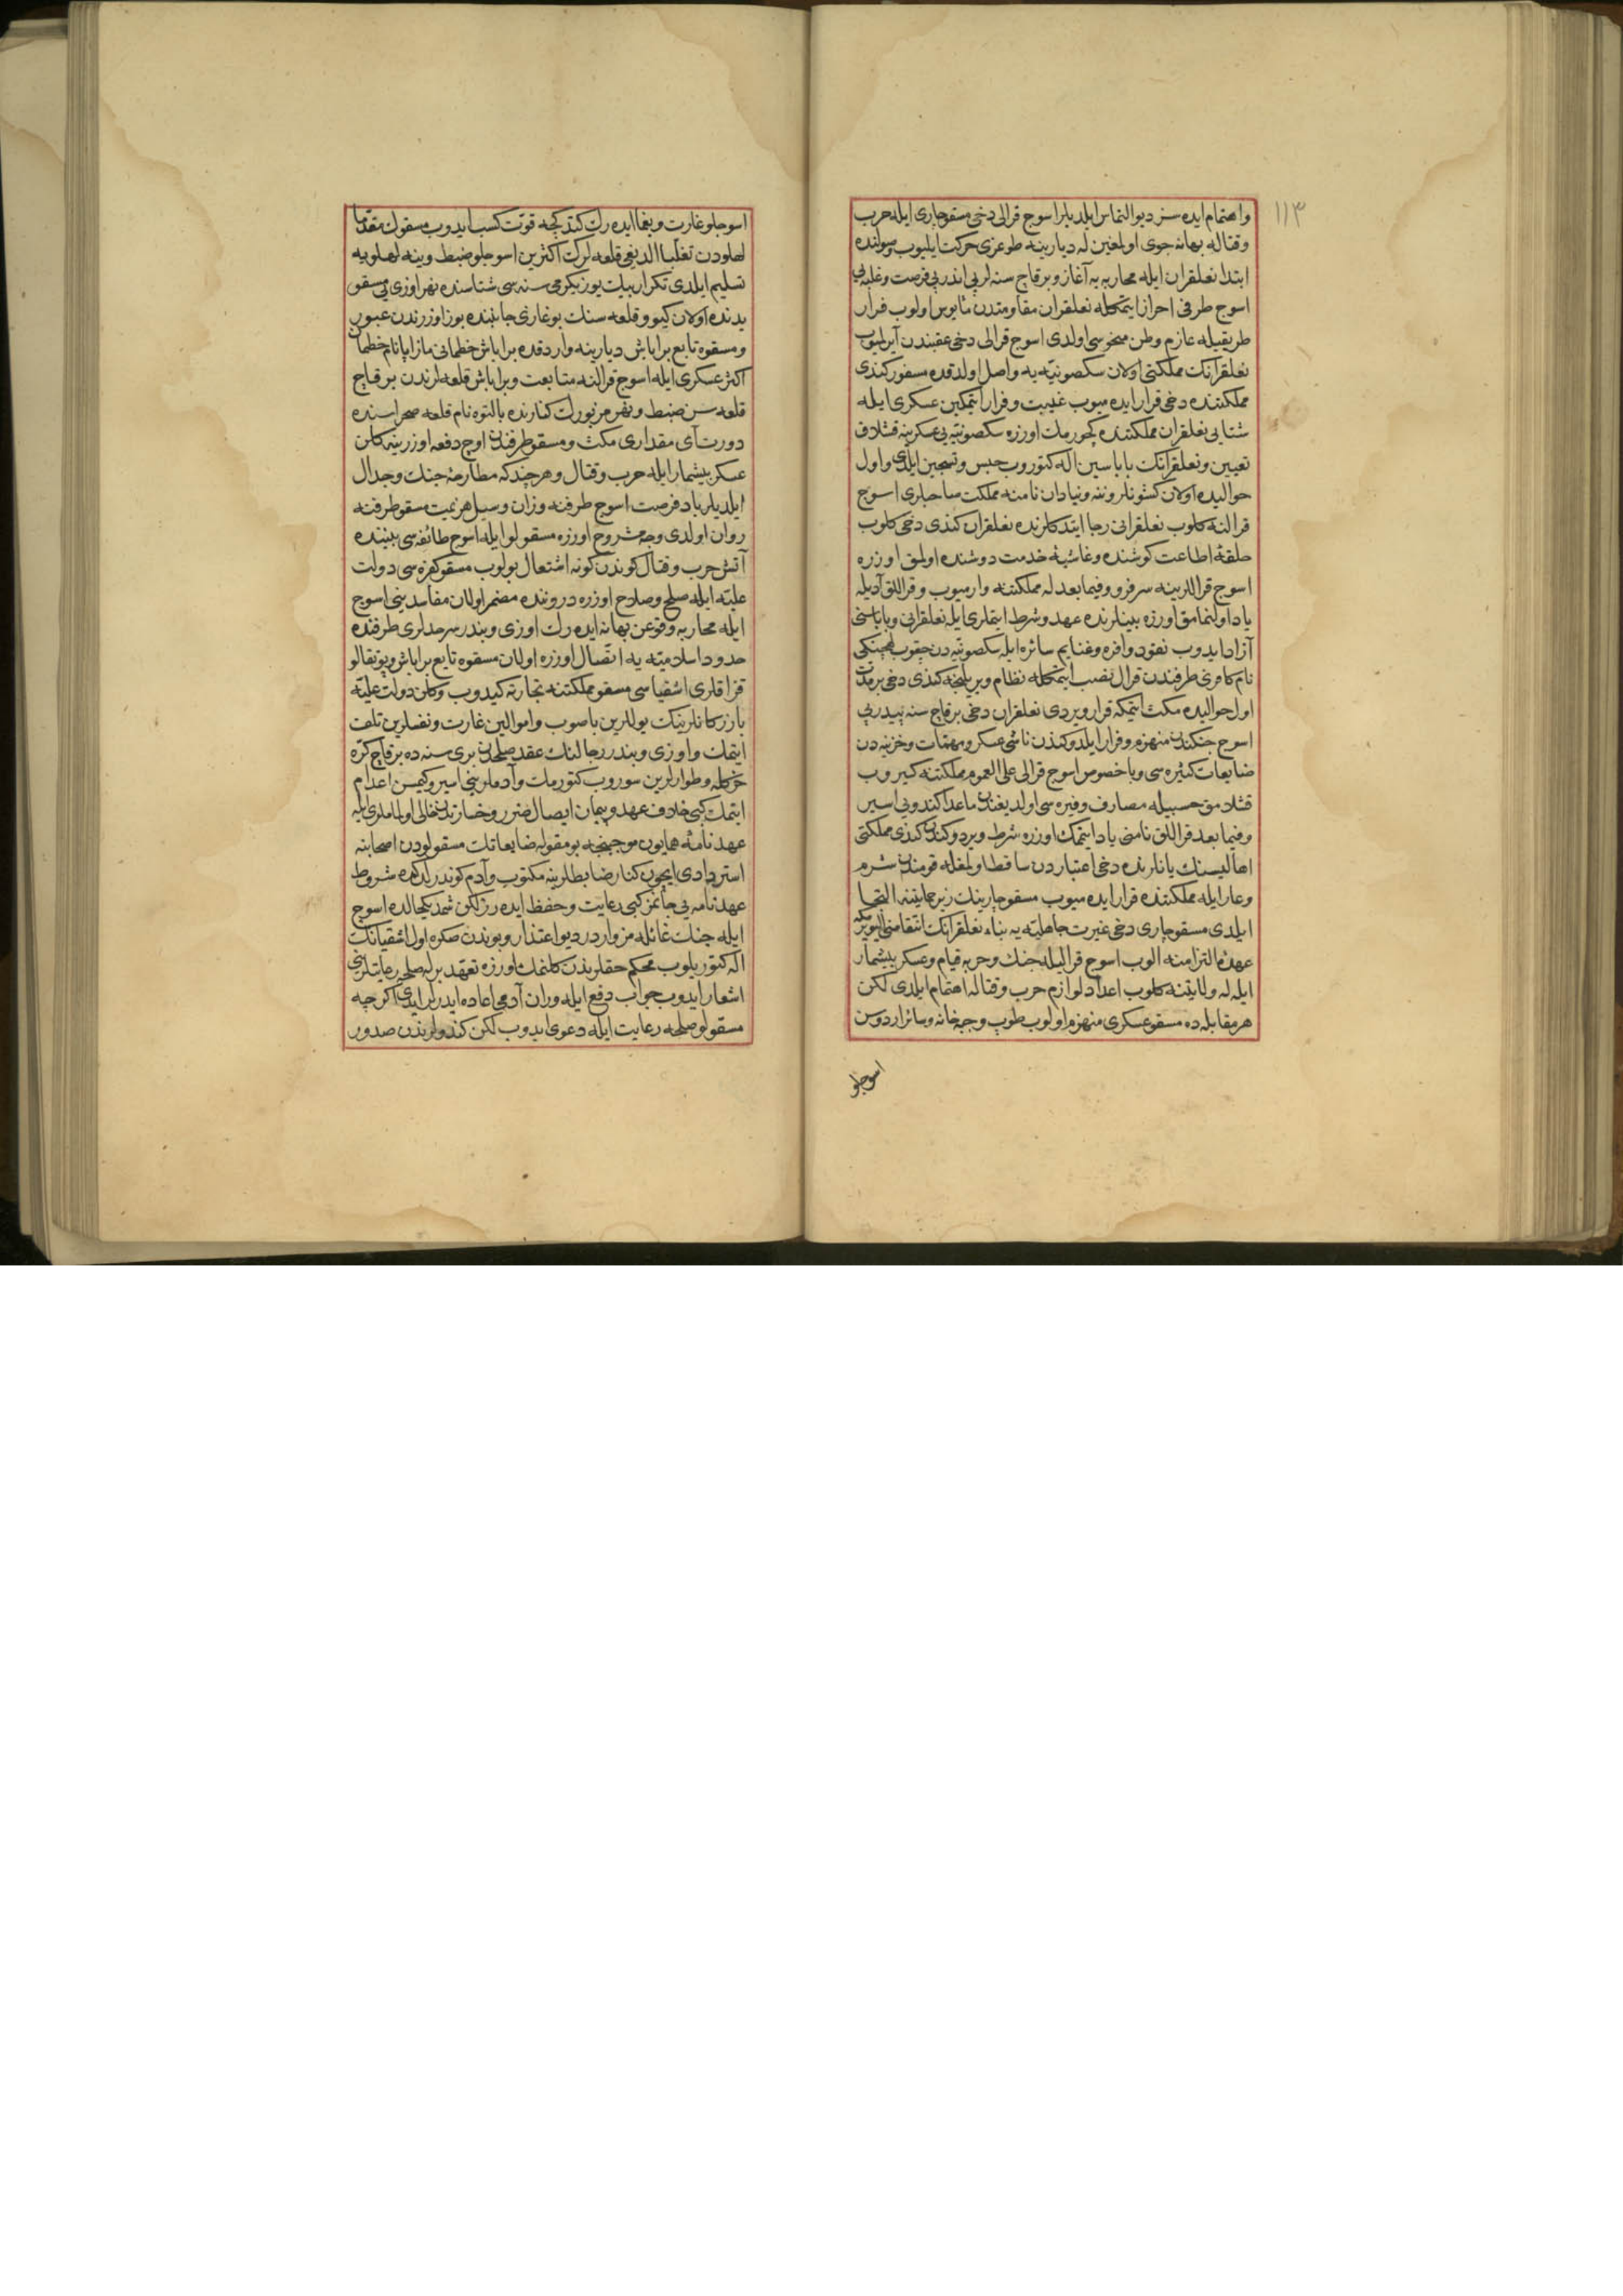 ١١٣
واهتمام ایده سز دیو التماس ایلدیلر اسوج قرالی دخی مسقو چاری ایله حرب
وقتاله بهانه جوی اولمغین له دیارینه طوغری حرکت ایلیوب و یولنده
ابتدا نعلقران ایله محاربه یه آغاز و برقاچ سنه لر پی اندر پی فرصت و غلبه یی
اسوج طرفی احراز ایتمکله نعلقران مقاومتدن مأیوس اولوب فرار
طریقیله عازم وطن منحوسی اولدی اسوج قرالی دخی عقبندن آیرلمیوب
نعلقرانك مملکتی اولان سکصونیه یه واصل اولدقده مسفور کندی
مملکتنده دخی قرار ایده میوب غیبت و فرار ایتمکین عسکری ایله
شتایی نعلقران مملکتنده کچورمك اوزره سکصونیه یی عسکرینه قشلاق
تعیین و نعلقرانك باباسین اله کتوروب حبس و تسجین ایلدی و اول
حوالیده اولان کشونلر و ننه و نیادان نامنه مملکت صاحبلری اسوج
قرالنه کلوب نعلقرانی رجا ایتدکلرنده نعلقران کندی دخی کلوب
حلقۀ اطاعت کوشنده و غاشیۀ خدمت دوشنده اولمق اوزره
اسوج قراللرینه سرفرو و فیما بعد له مملکتنه وارمیوب و قراللق آدیله
یاد اولنمامق اوزره بینلرنده عهد و شرط ایتملری ایله نعلقرانی و باباسنی
آزاد ایدوب نقود وافره و غنایم سائره ایله سکصونیه دن چقوب لهچنسکی
نام کافری طرفندن قرال نصب ایتمکله نظام ویریلنجه کندی دخی بر مدت
اول حوالیده مکث ایتمکه قرار ویردی نعلقران دخی برقاچ سنه پیدرپی
اسوج جنکندن منهزم و فرار ایلدوکندن ناشی عسکر و مهمات و خزینه دن
ضایعات کثیره سی و باخصوص اسوج قرالی علی العموم مملکتنه کیروب
قشلامق حسبیله مصارف وفیره سی اولدیغندن ماعدا کندویی اسیر
و فیما بعد قراللق نامنی یاد ایتمك اوزره شرط ویردوکندن کندی مملکتی
اهالیسنك یانلرنده دخی اعتباردن ساقط اولمغله قومندن شرم
و عار ایله مملکتنده قرار ایده میوب مسقو چارینك زیر حمایتنه التجا
ایلدی مسقو چاری دخی غیرت جاهلیه یه بناء نعلقرانك انتقامنی الیویرمکه
عهدۀ التزامنه الوب اسوج قرالیله جنك و حربه قیام و عسکر بیشمار
ایله له ولایتنه کلوب اعداد لوازم حرب و قتاله اهتمام ایلدی لکن
هر مقابله ده مسقو عسکری منهزم اولوب طوپ و جبه خانه و سائر اردوسن
اسوجلو
اسوجلو غارت و یغما ایده رك کتدکجه قوت کسب ایدوب مسقونك مقدما
لهلودن تغلبا الدیغی قلعه لرك اکثرین اسوجلو ضبط و ینه لهلویه
تسلیم ایلدی تکرار بیك یوز یکرمی سنه سی شتاسنده نهر اوزی یی مسقو
یدنده اولان کیوو قلعه سنك بوغازی جانبنده بوز اوزرندن عبور
و مسقوه تابع برابаش دیارینه واردقده براباش خطمانی مازاپا نام خطمان
اکثر عسکری ایله اسوج قرالنه متابعت و براباش قلعه لرندن برقاچ
قلعه سن ضبط و نهر مزبورك کنارنده بالتوه نام قلعه صحراسنده
دورت آی مقداری مکث و مسقو طرفندن اوچ دفعه اوزرینه کلن
عسکر بیشمار ایله حرب و قتال و هر چند که مطارحۀ جنك و جدال
ایلدیلر باد فرصت اسوج طرفنه وزان و سیل هزیمت مسقو طرفنه
روان اولدی وجه مشروح اوزره مسقولو ایله اسوج طائفه سی بیننده
آتش حرب و قتال کوندن کونه اشتعال بولوب مسقو کفره سی دولت
علیه ایله صلح و صلاح اوزره دروننده مضمر اولان مفاسدینی اسوج
ایله محاربه وقوعن بهانه ایده رك اوزی و بندر سرحدلری طرفنده
حدود اسلامیه یه اتصال اوزره اولان مسقوه تابع براباش و پوتقالو
قزاقلری اشقیاسی مسقو مملکتنه تجارته کیدوب وکلن دولت علیه
بازرکانلرینك یوللرین باصوب و اموالین غارت و نفسلرین تلف
ایتمك و اوزی و بندر رجالنك عقد صلحدن بری سنه ده برقاچ کره
خرکله و طوارلرین سوروب کتورمك و آدملرینی اسیر و کیمسن اعدام
ایتمك کبی خلاف عهد و پیمان ایصال ضرر و خسارتدن خالی اولماملری ایله
عهدنامۀ همایون موجبنجه بو مقوله ضایعاتك مسقولودن اصحابنه
استردادی ایچون کنار ضابطلرینه مکتوب و آدم کوندرلدکده شروط
عهدنامه یی جانمز کبی رعایت و حفظ ایده رز لکن شمدیکیحالده اسوج
ایله جنك غائله مز واردر دیو اعتذار و بوندن صکره اول اشقیانك
اله کتوریلوب محکم حقلرندن کلنمك اوزره تعهد برله صلحه رعایتلرینی
اشعار ایدوب جواب دفع ایله وران آدمی اعاده ایدرلر ایدی اکرچه
مسقولو صلحه رعایت ایله دعوی ایدوب لکن کندولرندن صدور